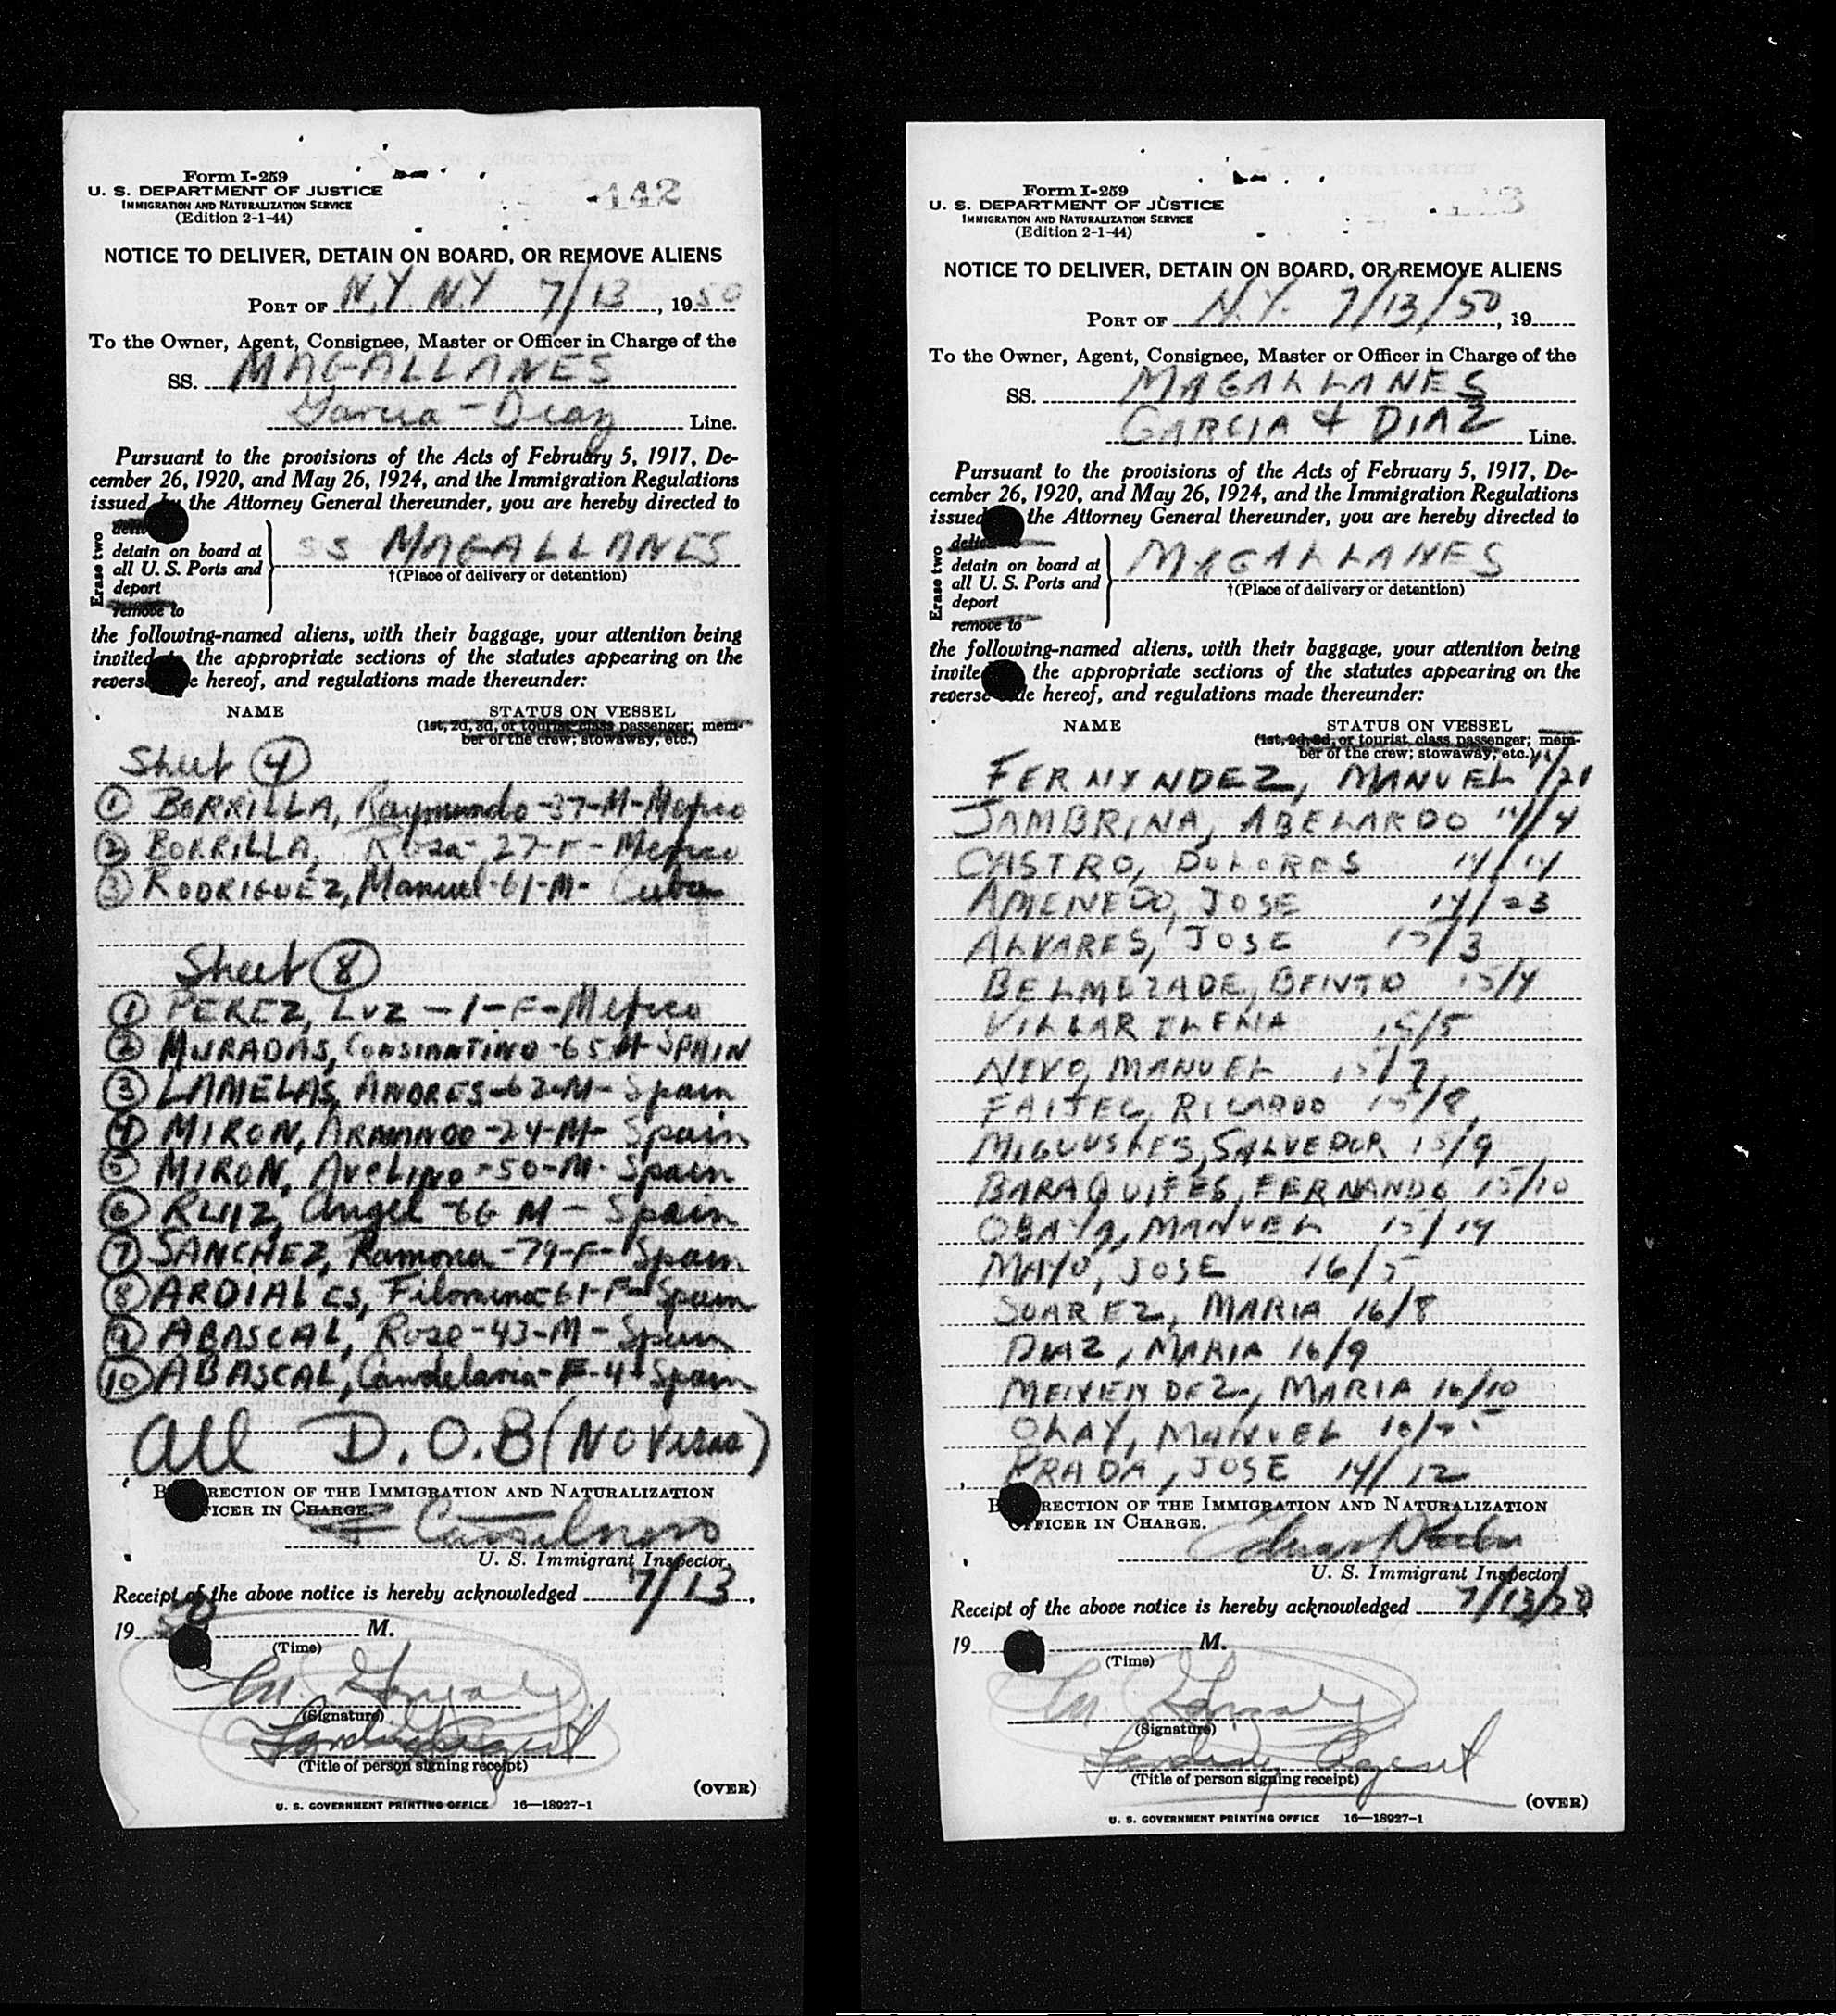 Form I-259
U. S. DEPARTMENT OF JUSTICE
IMMIGRATION AND NATURALIZATION SERVICE
(Edition 2-1-44)
142
NOTICE TO DELIVER, DETAIN ON BOARD, OR REMOVE ALIENS
PORT OF N.Y. N.Y 7/13, 1950
To the Owner, Agent, Consignee, Master or Officer in Charge of the
SS. MAGALLANES
Garcia - Diaz Line.
Pursuant to the provisions of the Acts of February 5, 1917, De-
cember 26, 1920, and May 26, 1924, and the Immigration Regulations
issued by the Attorney General thereunder, you are hereby directed to
Erase two
detain on board at
all U. S. Ports and
deport
remove to
SS MAGALLANES
†(Place of delivery or detention)
the following-named aliens, with their baggage, your attention being
invited the appropriate sections of the statutes appearing on the
hereof, and regulations made thereunder:
NAME STATUS ON VESSEL
(1st, 2d, 3d, or tourist class passenger; mem-
ber of the crew; stowaway, etc.)
Sheet 4
1 BORRILLA, Raymundo-37-M-Mexico
2 BORRILLA, Rosa-27-F-Mexico
3 RODRIGUEZ, Manuel-61-M- Cuba
Sheet 8
1 PEREZ, LUZ -1-F-Mexico
2 MURADAS, CONSTANTINO-65-M-SPAIN
3 LAMELAS, ANDRES-62-M- Spain
4 MIRON, ARMANDO-24-M- Spain
5 MIRON, Avelino-50-M- Spain
6 RUIZ, Angel-66 M- Spain
7 SANCHEZ, Ramona-79-F- Spain
8 ARDIALES, Filomina-61-F- Spain
9 ABASCAL, Rose-43-M-Spain
10 ABASCAL, Candelaria-F-4-Spain
All D.O.B (NO Visas)
RECTION OF THE IMMIGRATION AND NATURALIZATION
ICER IN CHARGE.
U. S. Immigrant Inspector.
Receipt of the above notice is hereby acknowledged 7/13,
1950 M.
(Time)
(Signature)
Landing Agent
(Title of person signing receipt)
(OVER)
U. S. GOVERNMENT PRINTING OFFICE 16—18927-1
Form I-259
U. S. DEPARTMENT OF JUSTICE
IMMIGRATION AND NATURALIZATION SERVICE
(Edition 2-1-44)
NOTICE TO DELIVER, DETAIN ON BOARD, OR REMOVE ALIENS
PORT OF N.Y. 7/13/50, 19
To the Owner, Agent, Consignee, Master or Officer in Charge of the
SS. MAGALLANES
GARCIA & DIAZ Line.
Pursuant to the provisions of the Acts of February 5, 1917, De-
cember 26, 1920, and May 26, 1924, and the Immigration Regulations
issued the Attorney General thereunder, you are hereby directed to
Erase two
detain on board at
all U. S. Ports and
deport
remove to
MAGALLANES
†(Place of delivery or detention)
the following-named aliens, with their baggage, your attention being
invite the appropriate sections of the statutes appearing on the
hereof, and regulations made thereunder:
NAME STATUS ON VESSEL
(1st, 2d, 3d, or tourist class passenger; mem-
ber of the crew; stowaway, etc.)
FERNYNDEZ, MANUEL
JAMBRINA, ABELARDO 14/4
CASTRO, DOLORES 14/14
AMENEDO, JOSE 14/23
ALVARES, JOSE 15/3
BELMEZADE, BENITO 15/4
VILLAR ELENIA 15/5
NIVO, MANUEL 15/7
RICARDO 15/8
SALVEDOR 15/9
FERNANDO 15/10
OBAYA, MANUEL 15/14
MAYO, JOSE 16/5
SUAREZ, MARIA 16/8
DIAZ, MARIA 16/9
MENENDEZ, MARIA 16/10
OLAY, MANUEL
PRADA, JOSE 14/12
RECTION OF THE IMMIGRATION AND NATURALIZATION
OFFICER IN CHARGE.
U. S. Immigrant Inspector
Receipt of the above notice is hereby acknowledged 7/13/50
19 M.
(Time)
(Signature)
Landing Agent
(Title of person signing receipt)
(OVER)
U. S. GOVERNMENT PRINTING OFFICE 16—18927-1